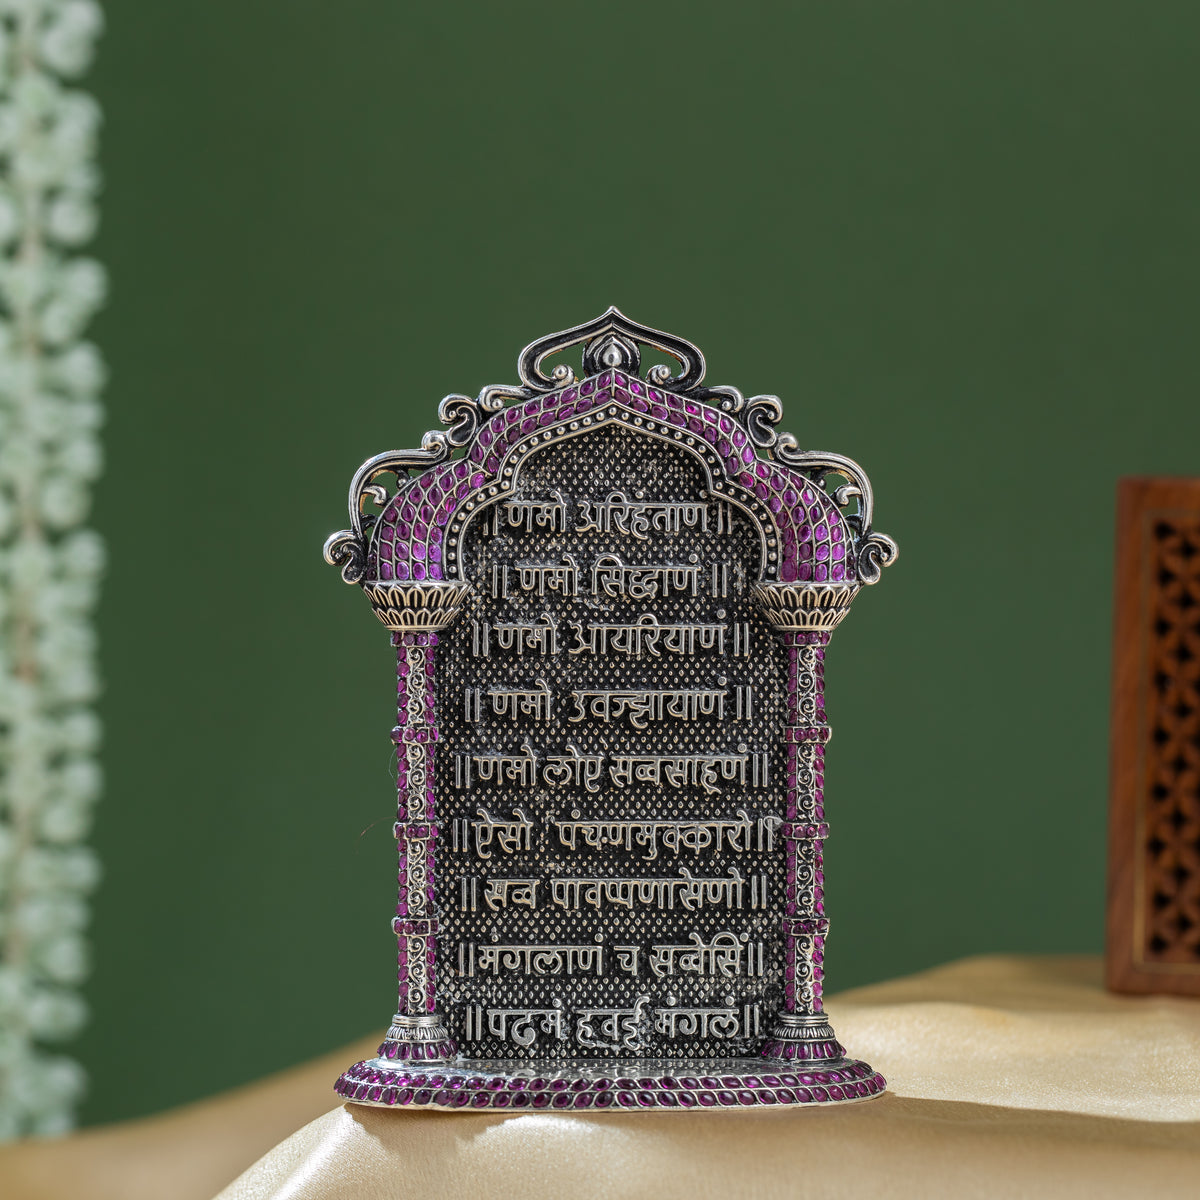 ॥ णमो अरिहंताणं ॥
॥ णमो सिद्धाणं ॥
॥ णमो आयरियाणं ॥
॥ णमो उवज्झायाणं ॥
॥ णमो लोए सव्वसाहूणं ॥
॥ ऐसो पंचणमुक्कारो ॥
॥ सव्व पावप्पणासेणो ॥
॥ मंगलाणं च सव्वेसिं ॥
॥ पढमं हवई मंगलं ॥